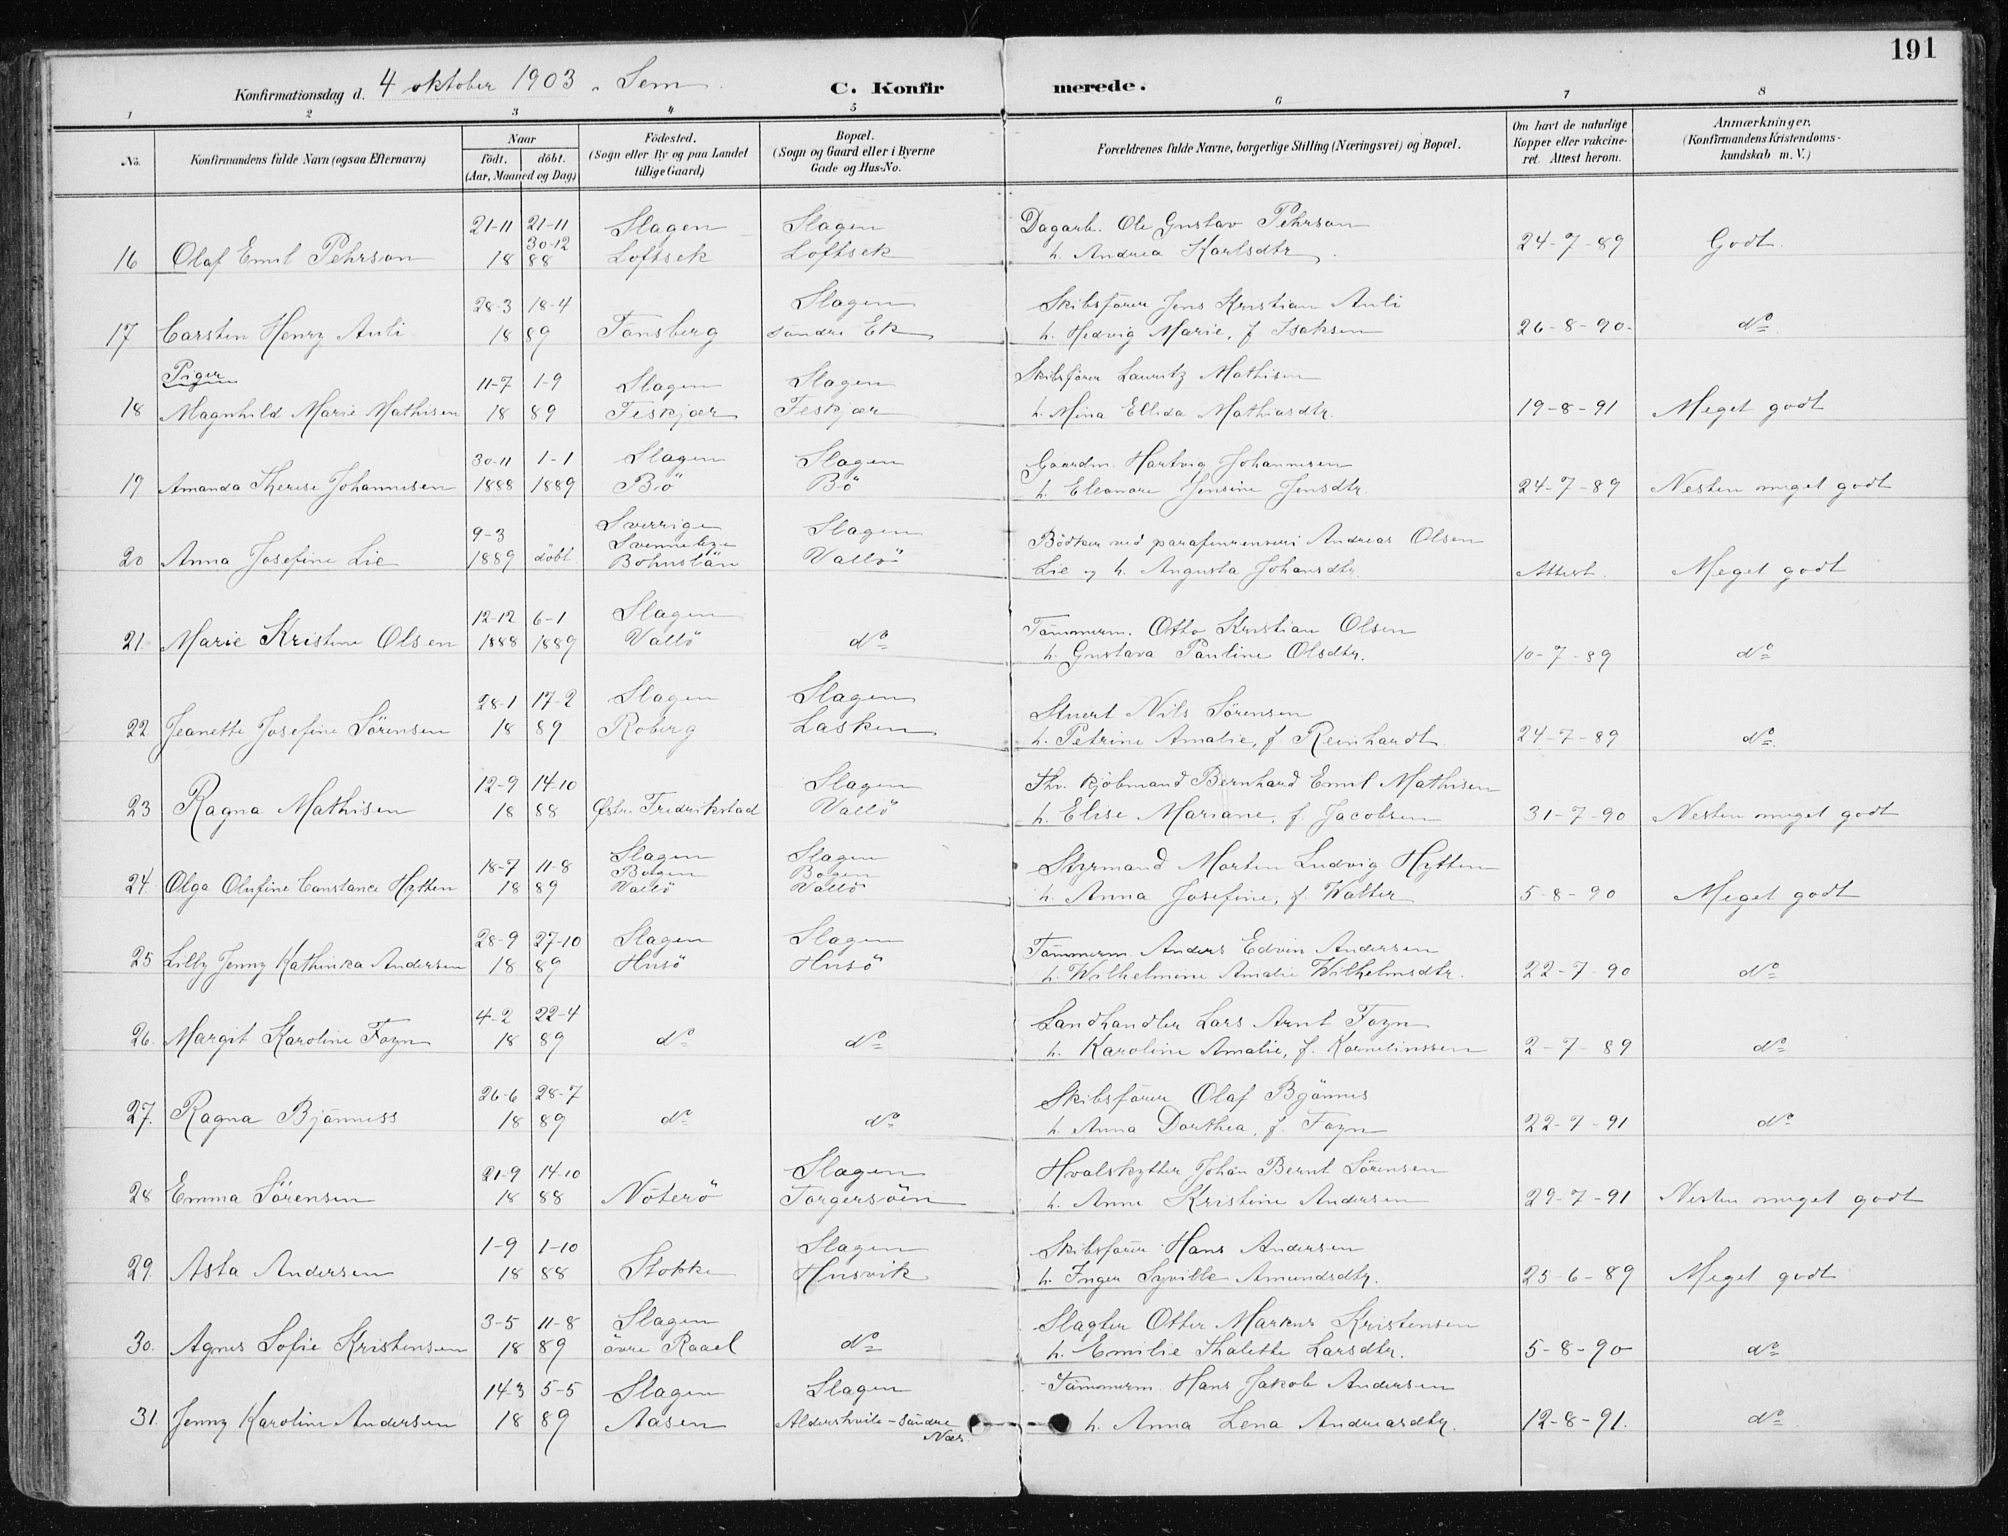 191
Konfirmationsdag d. 4 oktober 1903. Sem C. Konfirmerede.
1 2 3 4 5 6 7 8
No. Konfirmandens fulde Navn (ogsaa Efternavn) Naar Födt. döbt. (Aar, Maaned og Dag) Födested. (Sogn eller By og paa Landet tillige Gaard) Bopæl. (Sogn og Gaard eller i Byerne Gade og Hus-No. Forældrenes fulde Navne, borgerlige Stilling (Næringsvei) og Bopæl. Om havt de naturlige Kopper eller vakcineret. Attest herom. Anmærkninger. (Konfirmandens Kristendomskundskab m. V.)
21-11 21-11 Slagen Slagen Dagarb. Ole Gustav Pehrson
30-12
16 Olaf Emil Pehrson 18 88 Loftsek Loftsek h. Andrea Karlsdtr. 24-7-89 Godt.
28-3 18-4 Slagen Skibsförer Jens Kristian Auli
17 Carsten Henry Auli 18 89 Tönsberg söndre Ek h. Hedvig Marie, f. Isaksen 26-8-90. do
Piger
11-7 1-9 Slagen Slagen Skibsförer Lauritz Mathisen
18 Magnhild Marie Mathisen 18 89 Feskjær Feskjær h. Mina Ellida Mathiasdtr. 19-8-91 Meget godt
30-11 1-1 Slagen Slagen Gaardm. Hartvig Johannesen
19 Amanda Therese Johannesen 1888 1889 Bö Bö h. Eleonore Jensine Jensdtr. 24-7-89 Nesten meget godt
9-3 Sverrige Slagen Bödker ved parafinrenseri Andreas Olsen
Svenneby
20 Anna Josefine Lie 1889 döbt Bohuslän Vallö Lie og h. Augusta Johansdtr. Attest. Meget godt
12-12 6-1 Slagen Tömmerm. Otto Kristian Olsen
21. Marie Kristine Olsen 1888 1889 Vallö do h. Gustava Pauline Olsdtr. 10-7-89 do
28-1 17-2 Slagen Slagen Stuert Nils Sörensen
22 Jeanette Josefine Sörensen 18 89 Roberg Lasken h. Petrine Amalie, f. Reinhardt 24-7-89 do
12-9 14-10 Slagen Fhv. kjöbmand Bernhard Emil Mathisen
23 Ragna Mathisen 18 88 Östr. Fredrikstad Vallö h. Elise Mariane, f. Jacobsen 31-7-90 Nesten meget godt
18-7 11-8 Slagen Slagen Styrmand Morten Ludvig Hytten
Bogen Bogen
24. Olga Olufine Constance Hytten 18 89 Vallö Vallö h. Anna Josefine, f. Walter 5-8-90 Meget godt
28-9 27-10 Slagen Slagen Tömmerm. Anders Edvin Andersen
25 Lilly Jenny Kathinka Andersen 18 89 Husö Husö h. Wilhelmine Amalie Wilhelmsdtr. 22-7-90 do
4-2 22-4 Landhandler Lars Arnt Foyn
26. Margit Karoline Foyn 18 89 do do h. Karoline Amalie, f. Korneliussen 2-7-89 do
26-6 28-7 Skibsförer Olaf Bjönnes
27. Ragna Bjönness 18 89 do do h. Anna Dorthea, f. Foyn 22-7-91 do
21-9 14-10 Slagen Hvalskytter Johan Bernt Sörensen
28 Emma Sörensen 18 88 Nöterö Torgersöen h. Anne Kristine Andersen 29-7-91 Nesten meget godt
1-9 1-10 Slagen Skibsförer Hans Andersen
29. Asta Andersen 18 88 Stokke Husvik h. Inger Syville Amundsdtr. 25-6-89 Meget godt
3-5 11-8 Slagen Slagter Otter Markus Kristensen
30. Agnes Sofie Kristensen 18 89 övre Raael do h. Emilie Thalette Larsdtr. 5-8-90 do
14-3 5-5 Slagen Slagen Tömmerm. Hans Jakob Andersen
31. Jenny Karoline Andersen 18 89 Aasen Aldershvile - söndre h. Anna Lena Andreasdtr. 12-8-91. do
Nær.